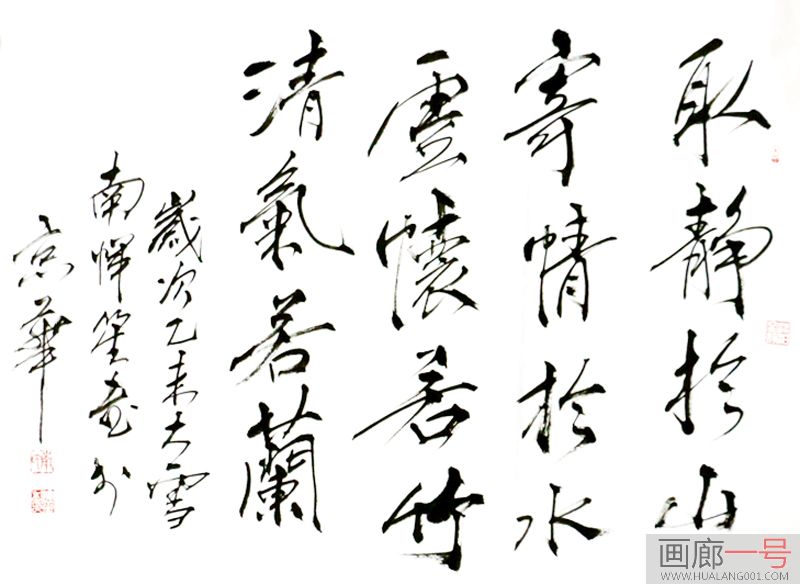 取靜於山
寄情於水
虛懷若竹
清氣若蘭
歲次乙未大雪
南惲笙畫於
京華
画廊一号
WWW.HUALANG001.COM